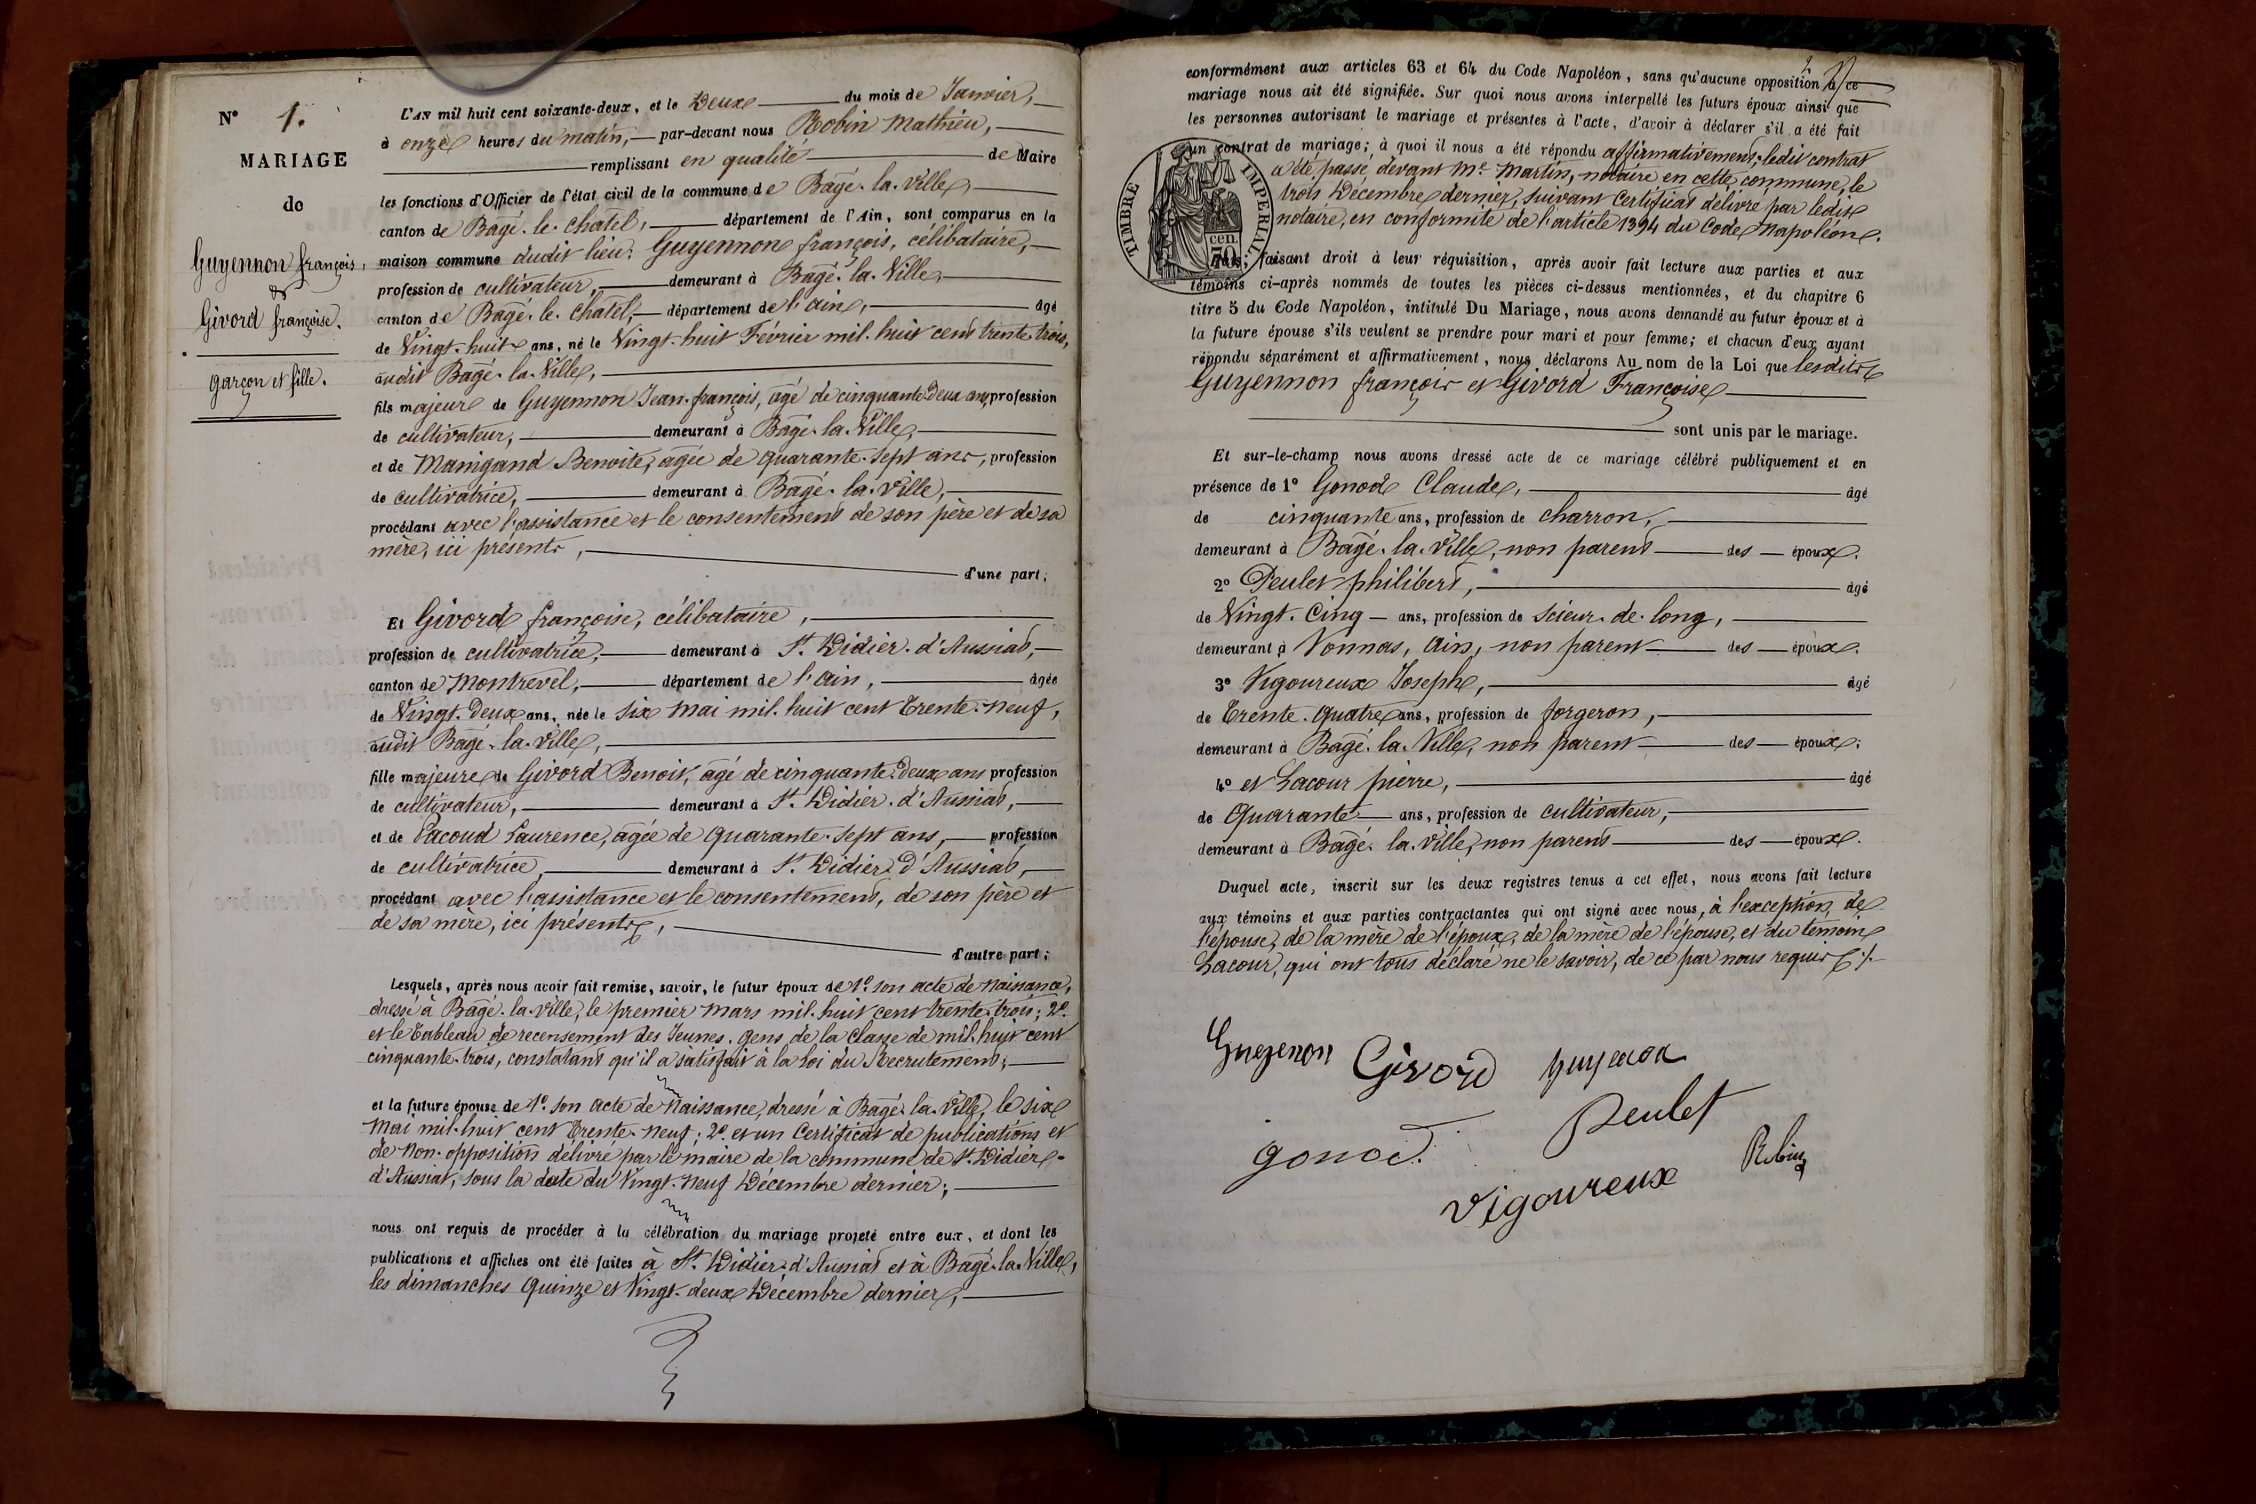 N° 1.
MARIAGE
de
Guyennon françois,
&
Givord françoise.
garçon et fille.
L'AN mil huit cent soixante-deux, et le Deux du mois de Janvier,
à onze heures du matin, par-devant nous Robin Mathieu,
remplissant en qualité de Maire
les fonctions d'Officier de l'état civil de la commune de Bagé-la-Ville,
canton de Bagé-le-Chatel, département de l'Ain, sont comparus en la
maison commune dudit lieu: Guyennon françois, célibataire,
profession de cultivateur, demeurant à Bagé-la-Ville,
canton de Bagé-le-Chatel, département de l'ain, âgé
de Vingt-huit ans, né le Vingt-huit Février mil-huit cent trente-trois,
audit Bagé-la-Ville,
fils majeur de Guyennon Jean-françois, âgé de cinquante-Deux ans, profession
de cultivateur, demeurant à Bagé-la-Ville,
et de Manigand Benoite, agée de quarante-sept ans, profession
de cultivatrice, demeurant à Bagé-la-Ville,
procédant avec l'assistance et le consentement de son père et de sa
mère, ici présents,
d'une part;
Et Givord françoise, célibataire,
profession de cultivatrice, demeurant à St. Didier-d'Aussiat,
canton de Montrevel, département de l'ain, âgée
de Vingt-Deux ans, née le six Mai mil-huit cent Trente-neuf,
audit Bagé-la-Ville,
fille majeure de Givord Benoit, agé de cinquante-Deux ans profession
de cultivateur, demeurant à St. Didier-d'Aussiat,
et de Pacoud Laurence, agée de quarante-sept ans, profession
de cultivatrice, demeurant à St. Didier d'Aussiat,
procédant avec l'assistance et le consentement, de son père et
de sa mère, ici présents,
d'autre part;
Lesquels, après nous avoir fait remise, savoir, le futur époux de 1° son acte de naissance,
dressé à Bagé-la-Ville, le premier Mars mil-huit cent trente-trois; 2°
et le Tableau de recensement des Jeunes-gens de la classe de mil-huit cent
cinquante-trois, constatant qu'il a satisfait à la loi du Recrutement;
et la future épouse de 1° son acte de Naissance, dressé à Bagé-la-Ville, le six
Mai mil-huit cent Trente-neuf; 2° et un Certificat de publications et
de Non-opposition délivré par le maire de la commune de St. Didier-
d'Aussiat, sous la date du Vingt-neuf Décembre dernier;
nous ont requis de procéder à la célébration du mariage projeté entre eux, et dont les
publications et affiches ont été faites à St. Didier-d'Aussiat et à Bagé-la-Ville,
les dimanches Quinze et Vingt-deux Décembre dernier,
2
conformément aux articles 63 et 64 du Code Napoléon, sans qu'aucune opposition à ce
mariage nous ait été signifiée. Sur quoi nous avons interpellé les futurs époux ainsi que
les personnes autorisant le mariage et présentes à l'acte, d'avoir à déclarer s'il a été fait
un contrat de mariage; à quoi il nous a été répondu affirmativement, ledit contrat
a été passé, devant Me. Martin, notaire en cette commune, le
trois Décembre dernier, suivant Certificat délivré par ledit
notaire, en conformité de l'article 1394 du Code Napoléon.
TIMBRE IMPÉRIAL
cen.
50
faisant droit à leur réquisition, après avoir fait lecture aux parties et aux
témoins ci-après nommés de toutes les pièces ci-dessus mentionnées, et du chapitre 6
titre 5 du Code Napoléon, intitulé Du Mariage, nous avons demandé au futur époux et à
la future épouse s'ils veulent se prendre pour mari et pour femme; et chacun d'eux ayant
répondu séparément et affirmativement, nous déclarons Au nom de la Loi que lesdits
Guyennon françois et Givord Françoise
sont unis par le mariage.
Et sur-le-champ nous avons dressé acte de ce mariage célébré publiquement et en
présence de 1° Gonod Claude, âgé
de cinquante ans, profession de charron,
demeurant à Bagé-la-Ville, non parent des époux.
2° Peulet philibert, âgé
de Vingt-Cinq ans, profession de scieur-de-long,
demeurant à Vonnas, Ain, non parent des époux.
3° Vigoureux Joseph, âgé
de Trente-Quatre ans, profession de forgeron,
demeurant à Bagé-la-Ville, non parent des époux;
4° et Lacour pierre, âgé
de Quarante ans, profession de cultivateur,
demeurant à Bagé-la-Ville, non parent des époux.
Duquel acte, inscrit sur les deux registres tenus à cet effet, nous avons fait lecture
aux témoins et aux parties contractantes qui ont signé avec nous, à l'exception de
l'épouse, de la mère de l'époux, de la mère de l'épouse, et du témoin
Lacour, qui ont tous déclaré ne le savoir, de ce par nous requis
Guyenon Givord guyenon
gonod. Peulet
Vigoureux Robin